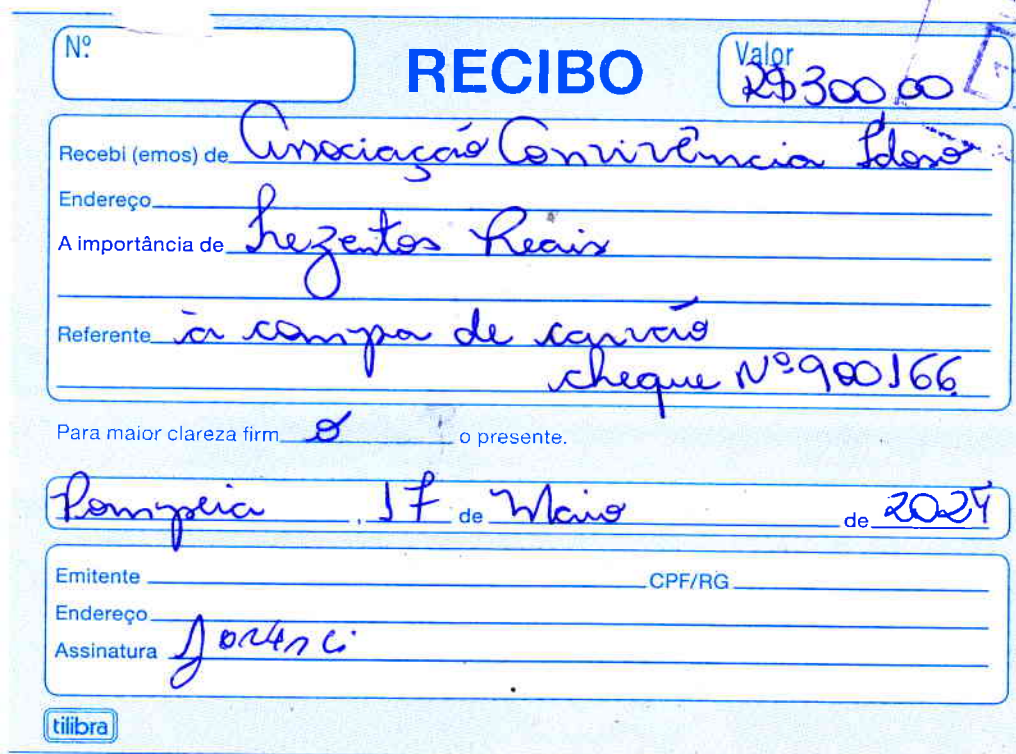 Nº
RECIBO
Valor
R$300,00
Recebi (emos) de Associação Convivência Idoso
Endereço
A importância de Trezentos Reais
Referente à compa de carvão
cheque Nº 900166
Para maior clareza firm o o presente.
Pompeia, 17 de Maio de 2024
Emitente CPF/RG
Endereço
Assinatura
tilibra